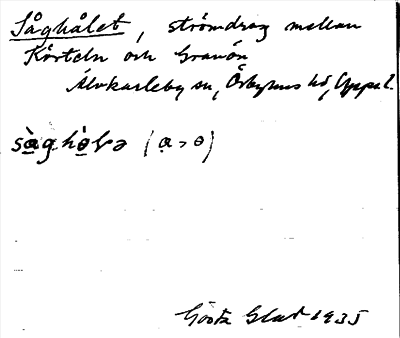 Såghålet, strömdrag mellan
Kårteln och Granön
Älvkarleby sn, Örbyhus hd, Uppsa l.
sàg hòlə (a > o)
Gösta Glad 1935